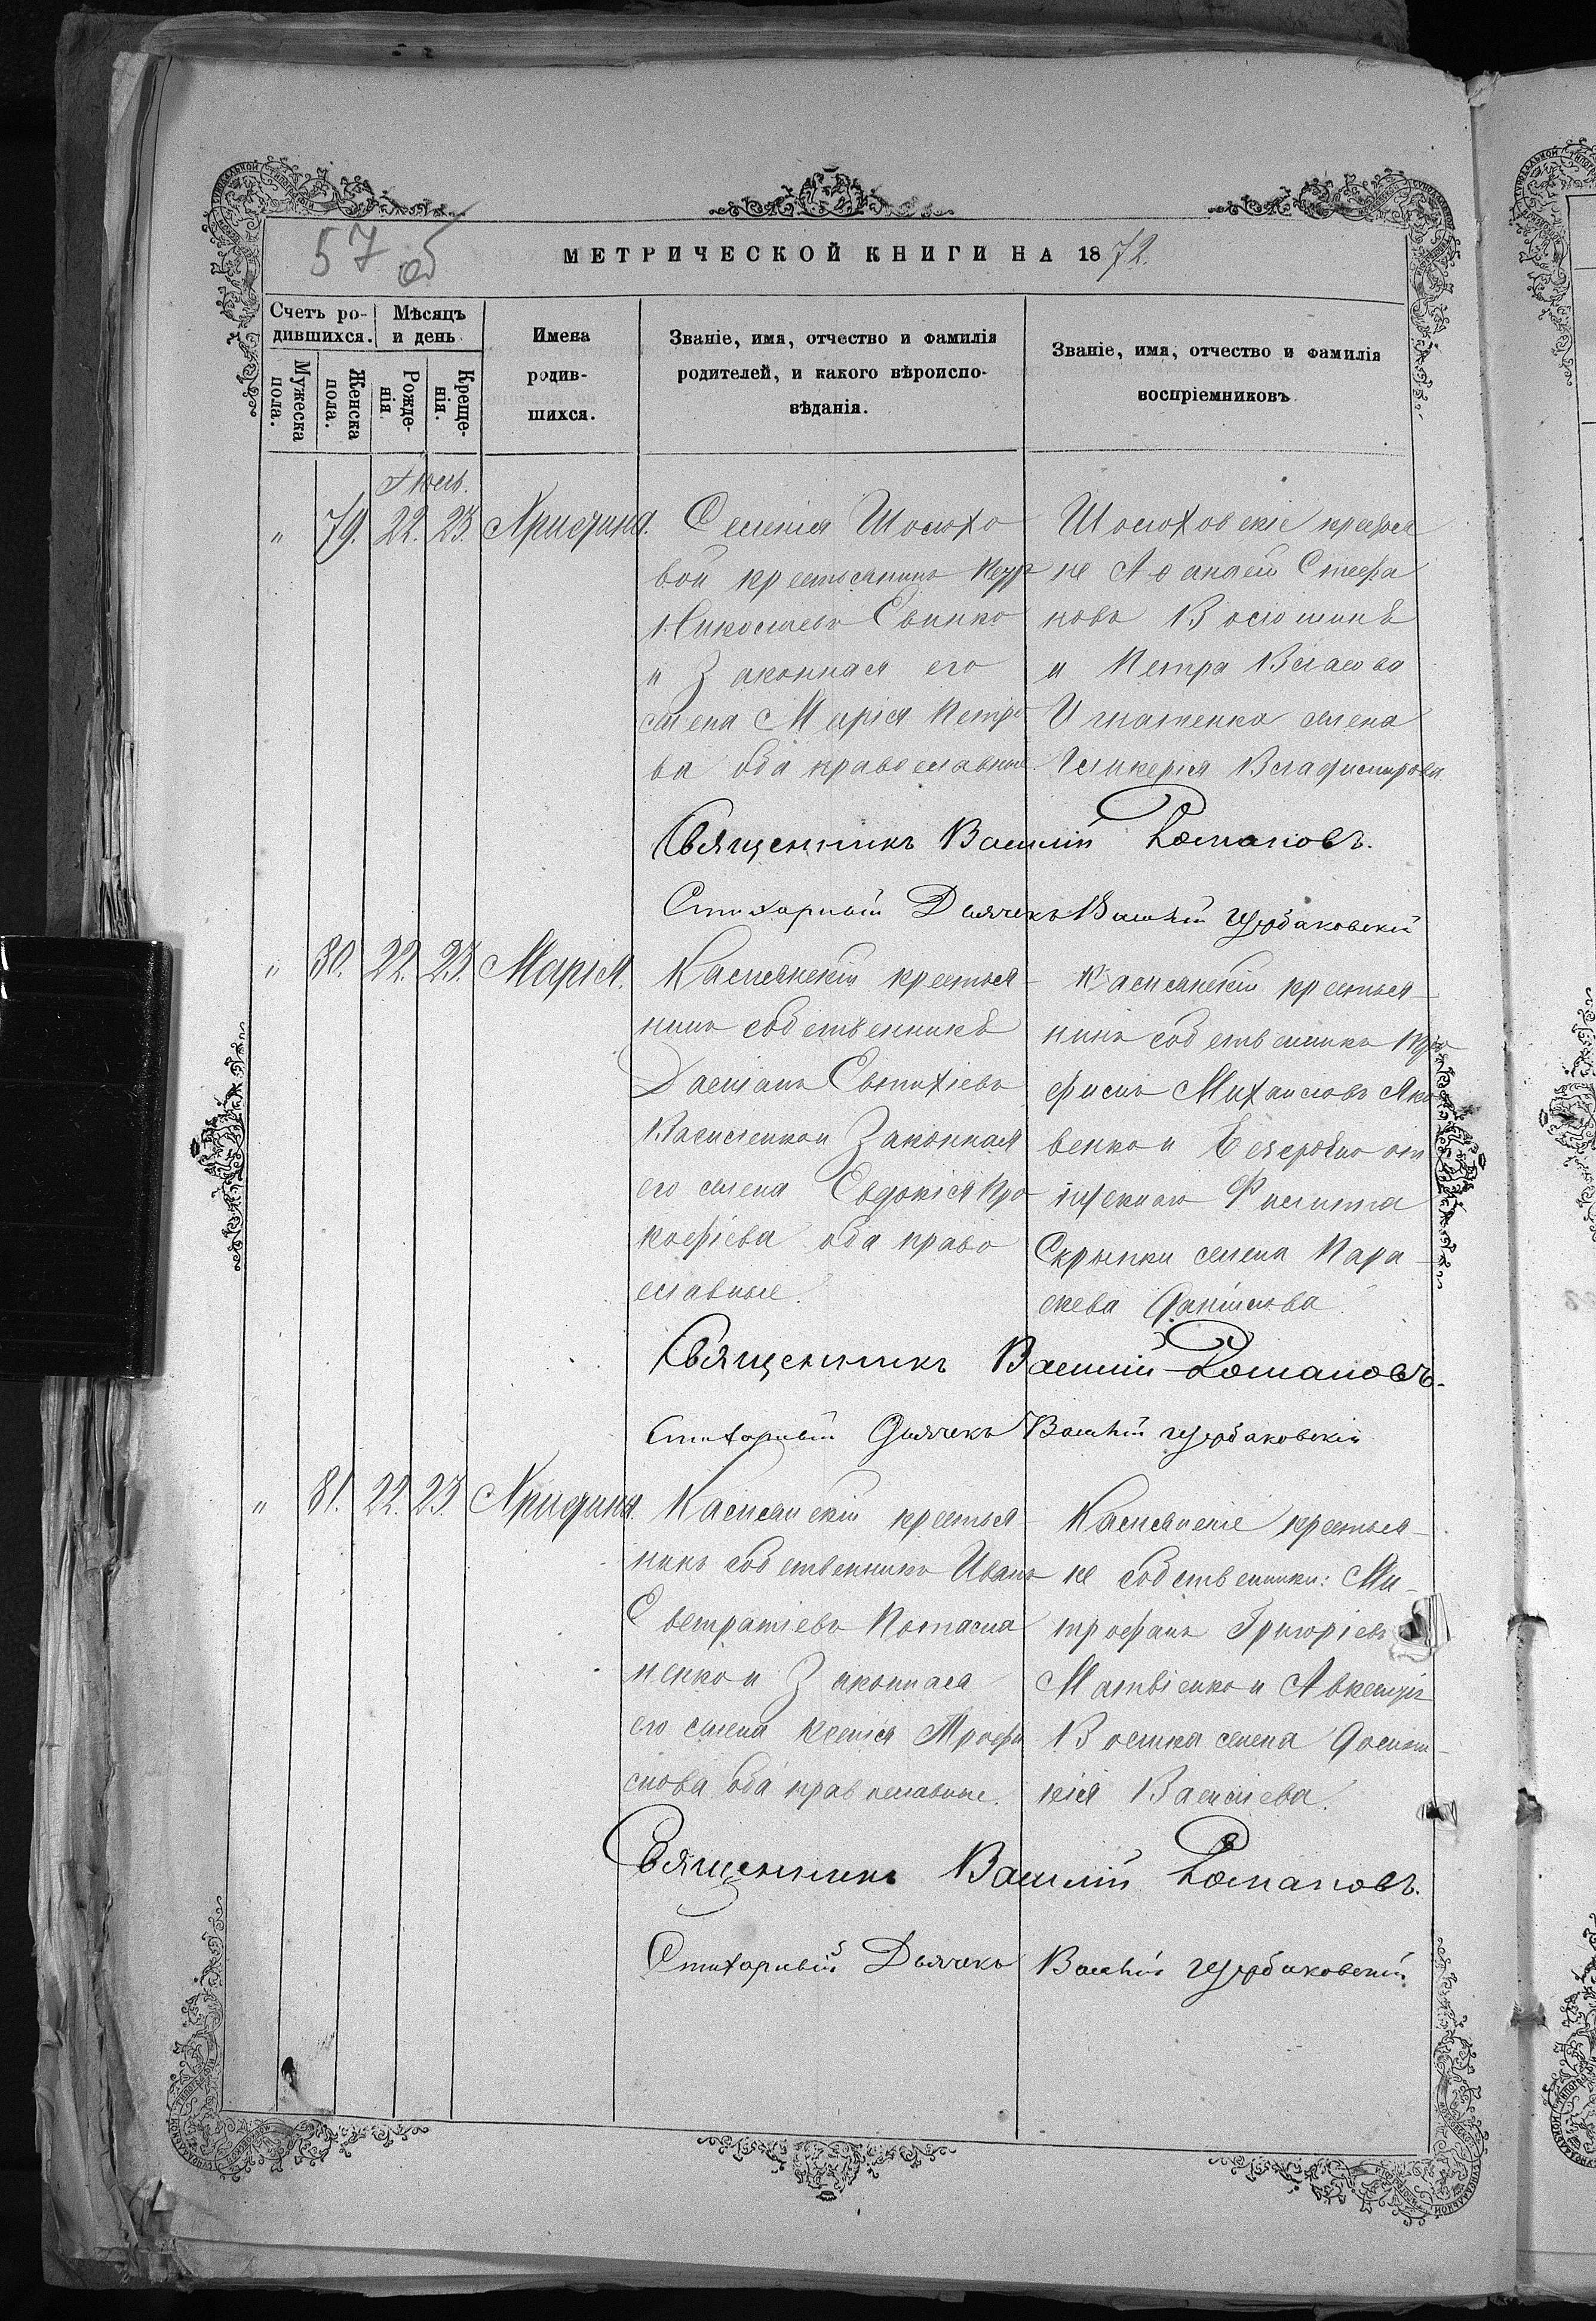 57 об
МЕТРИЧЕСКОЙ КНИГИ НА 1872.
Счетъ ро-
дившихся.
Мѣсяцъ
и день
Мужеска
пола.
Женска
пола.
Рожде-
нія.
Креще-
нія.
Имена
родив-
шихся.
Званіе, имя, отчество и фамилія
родителей, и какого вѣроиспо-
вѣданія.
Званіе, имя, отчество и фамилія
воспріемниковъ
Іюль.
" 79. 22. 23. Христина.
Селенія Шолохо
вой крестьянинъ Петръ
Николаевъ Свинко
и Законная его
жена Марія Петро
ва оба православные.
Шолоховскіе крестья
не Аѳанасій Стефа
новъ
и Петра Власова
Игнатенка жена
Гликерія Владимірова
Священникъ Василій Романовъ.
Стихарный Дьячекъ Василій Щербаковскій
" 80. 22. 23. Марія.
крестья-
нинъ собственникъ
Даміанъ Евтихіевъ
Василенко и Законная
его жена Евдокія Про
кофіева оба право
славные.
крестья-
нинъ собственникъ Тро
фимъ Михаиловъ Яко
венко и
Филиппа
Скрыпки жена Пара-
скева Даніилова.
Священникъ Василій Романовъ.
Стихарный Дьячекъ Василій Щербаковскій
" 81. 22. 23. Христина.
крестья-
нинъ собственникъ Иванъ
Евстратіевъ Потапа
ненко и Законная
его жена Ксенія Трофи
мова оба православные.
крестья-
не собственники: Ми-
трофанъ Григоріевъ
Матвіенко и
жена
кія Василіева.
Священникъ Василій Романовъ.
Стихарный Дьячекъ Василій Щербаковскій